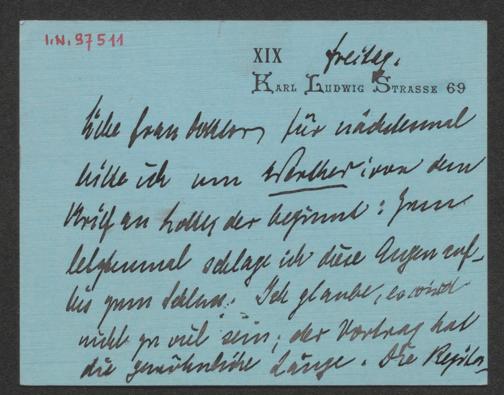 I.N. 97511
XIX Freitag.
KARL LUDWIG STRASSE 69
Liebe Frau Doktor, für nächstesmal
bitte ich um Werther: von dem
Brief an Lotte, der beginnt: Zum
letztenmal schlage ich diese Augen auf –
bis zum Schluss. Ich glaube, es wird
nicht zu viel sein; der Vortrag hat
die gewöhnliche Länge. Die